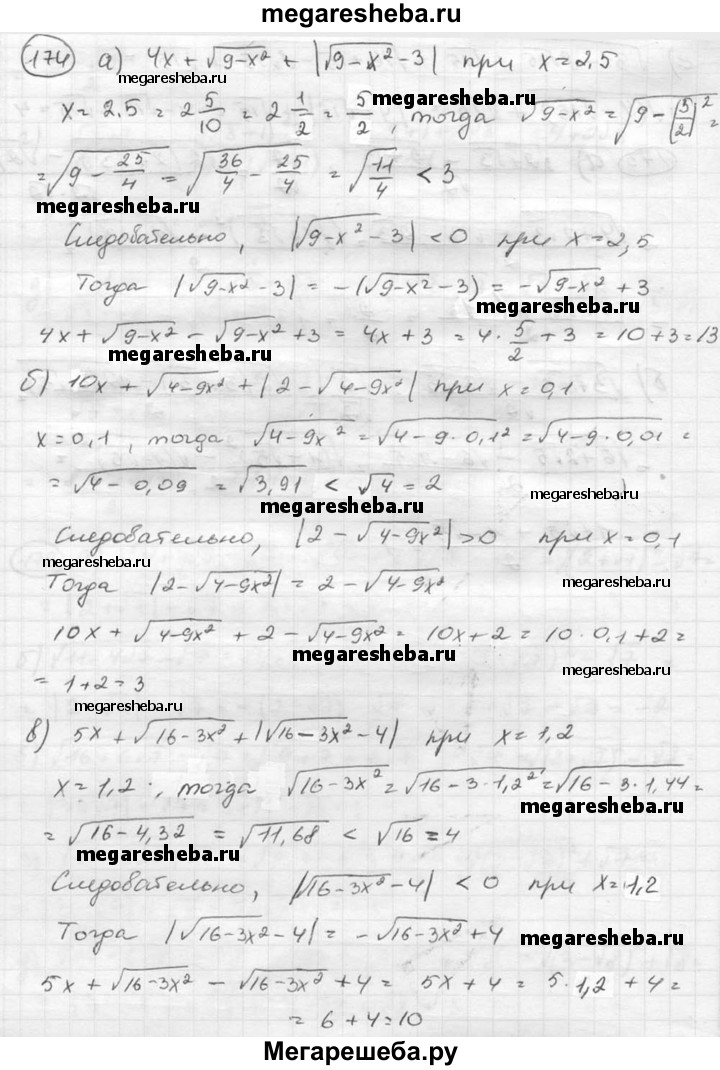 megaresheba.ru
174 а) 4x + √(9-x²) + |√(9-x²) - 3| при x = 2,5
megaresheba.ru
megaresheba.ru
x = 2.5 = 2 5/10 = 2 1/2 = 5/2, тогда √(9-x²) = √(9 - |5/2|² =
megaresheba.ru
= √(9 - 25/4) = √(36/4 - 25/4) = √(11/4) < 3
megaresheba.ru
Следовательно, |√(9-x²) - 3| < 0 при x = 2,5
Тогда |√(9-x²) - 3| = -(√(9-x²) - 3) = -√(9-x²) + 3
megaresheba.ru
4x + √(9-x²) - √(9-x²) + 3 = 4x + 3 = 4 · 5/2 + 3 = 10 + 3 = 13
megaresheba.ru
б) 10x + √(4-9x²) + |2 - √(4-9x²)| при x = 0,1
x = 0,1, тогда √(4-9x²) = √(4-9·0,1²) = √(4-9·0,01) =
= √(4-0,09) = √3,91 < √4 = 2
megaresheba.ru
Следовательно, |2 - √(4-9x²)| > 0 при x = 0,1
megaresheba.ru
Тогда |2 - √(4-9x²)| = 2 - √(4-9x²)
megaresheba.ru
10x + √(4-9x²) + 2 - √(4-9x²) = 10x + 2 = 10 · 0,1 + 2 =
megaresheba.ru
megaresheba.ru
= 1 + 2 = 3
megaresheba.ru
в) 5x + √(16-3x²) + |√(16-3x²) - 4| при x = 1,2
x = 1,2, тогда √(16-3x²) = √(16-3·1,2²) = √(16-3·1,44) =
megaresheba.ru
= √(16-4,32) = √11,68 < √16 = 4
megaresheba.ru
Следовательно, |√(16-3x²) - 4| < 0 при x = 1,2
Тогда |√(16-3x²) - 4| = -√(16-3x²) + 4
megaresheba.ru
5x + √(16-3x²) - √(16-3x²) + 4 = 5x + 4 = 5 · 1,2 + 4 =
= 6 + 4 = 10
Мегарешеба.ру